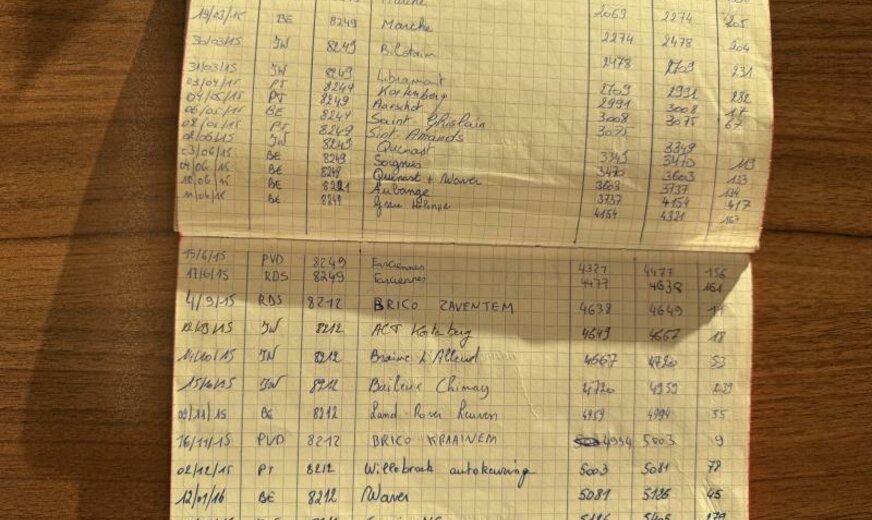 19/03/15 BE 8249 Marche 2069 2274 205
30/03/15 JW 8249 Bilstain 2274 2478 204
31/03/15 JW 8249 Libramont 2478 2709 231
03/04/15 PT 8249 Kortenberg 2709 2991 282
04/05/15 PT 8249 Aarschot 2991 3008 17
06/05/15 BE 8249 Saint Ghislain 3008 3075 67
PT 8249 Sint-Amands 3075
JW 8249 Quenast 3349
03/06/15 BE 8249 Soignies 3470 113
04/06/15 BE 8249 Quenast + Waver 3470 3603 133
10/06/15 BE Aubange 3603 3737 134
BE 8249 3737 4154 417
4154 4321 167
15/6/15 PVD 8249 Farciennes 4321 4477 156
17/6/15 RDS 8249 Farciennes 4477 4638 161
4/9/15 RDS 8212 BRICO ZAVENTEM 4638 4649 11
JW 8212 ACT Kortenberg 4649 4667 18
14/10/15 JW 8212 Braine L'Alleud 4667 4720 53
JW 8212 Baileux Chimay 4720 4959 239
09/11/15 BE 8212 Land-Rover Leuven 4959 4994 35
16/11/15 PVD 8212 BRICO KRAAINEM 4994 5003 9
02/12/15 PT 8212 Willebroek autokeuring 5003 5081 78
12/01/16 BE 8212 Waver 5081 5126 45